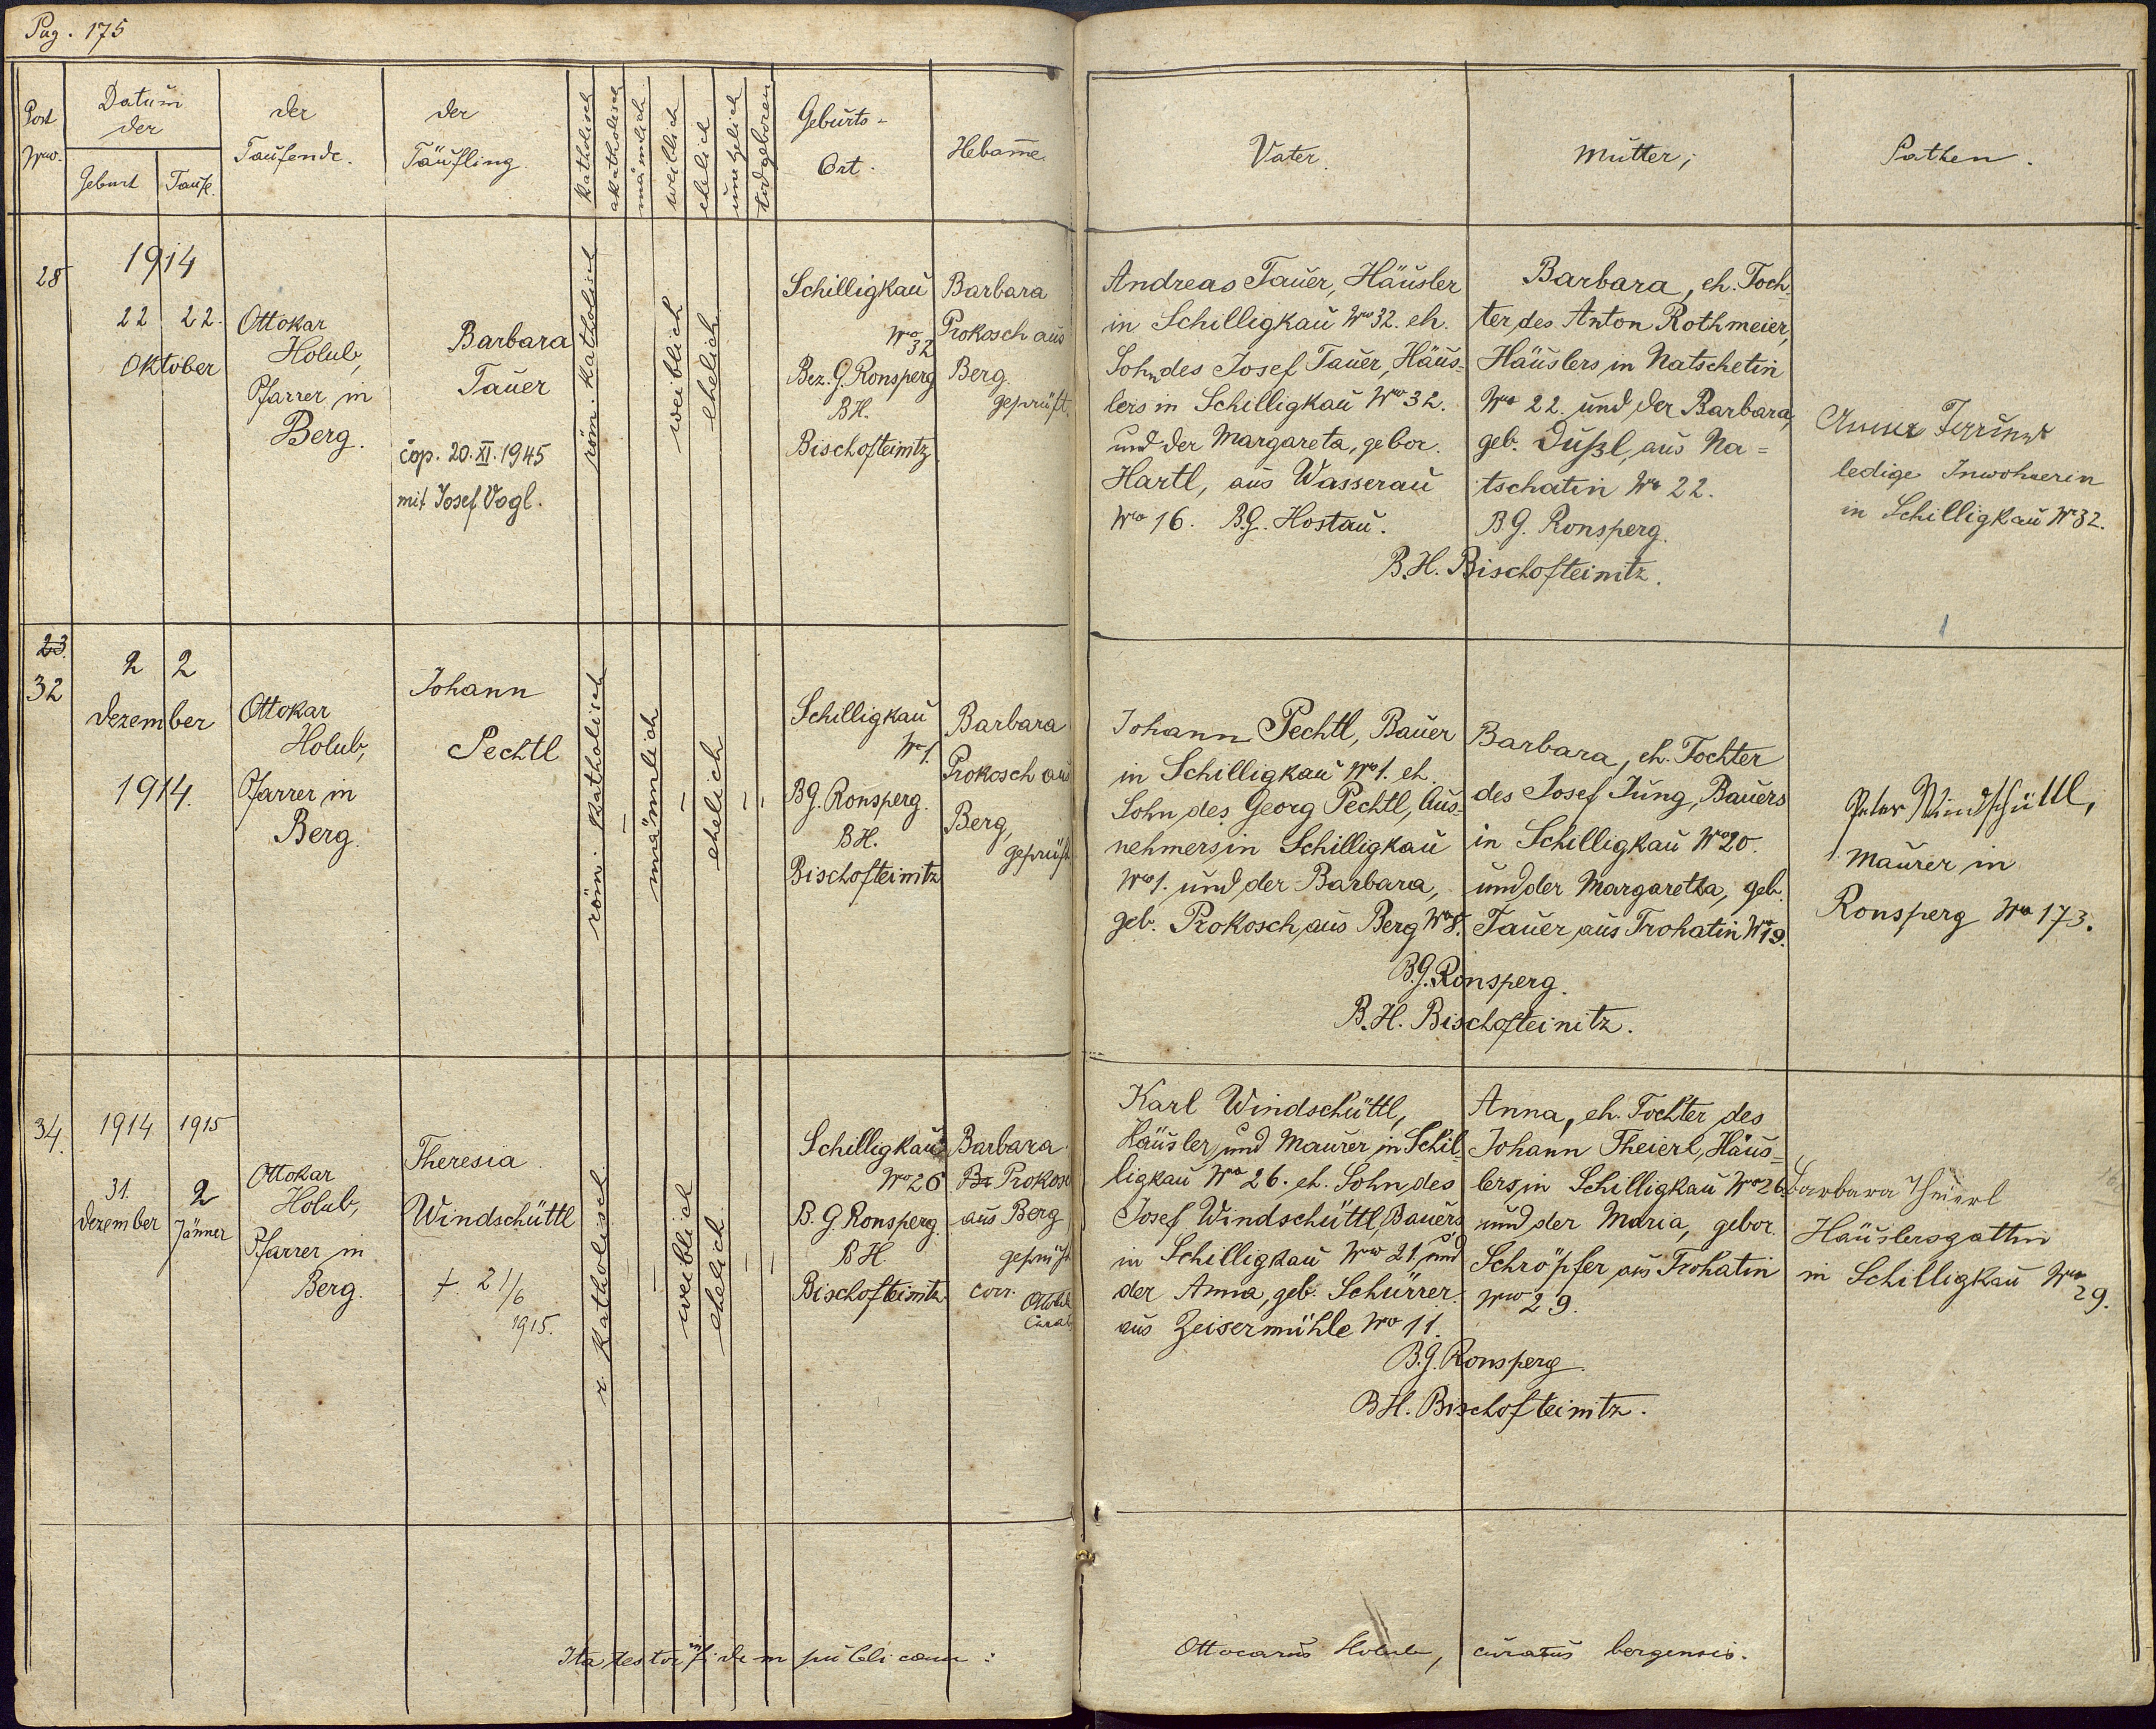 Pag. 175
Post
Nro.
Datum
der
Geburt
Taufe.
der
Taufende.
der
Täufling.
katholisch
akatholisch
männlich
weiblich
ehelich
unehelich
todgeboren
Geburts-
Ort.
Hebam̅e.
Vater.
Mutter;
Pathen.
28
1914
22 22.
Oktober
Ottokar
Holub,
Pfarrer in
Berg.
Barbara
Tauer
cop. 20. XI. 1945
mit Josef Vogl.
röm. katholisch
weiblich
ehelich
Schilligkau
Nro
32
Bez. G. Ronsperg
BH.
Bischofteinitz
Barbara
Prokosch aus
Berg.
geprüft.
Andreas Tauer, Häusler
in Schilligkau Nro 32. eh.
Sohn des Josef Tauer, Häus-
lers in Schilligkau Nro 32.
und der Margareta, gebor.
Hartl, aus Wasserau
Nro 16. B.G. Hostau.
Barbara, eh. Toch-
ter des Anton Rothmeier,
Häuslers in Natschetin
Nro 22. und der Barbara,
geb. Dußl, aus Na=
tschatin Nro 22.
B.G. Ronsperg.
B.H. Bischofteinitz.
Anna
ledige Inwohnerin
in Schilligkau Nr 32.
23.
32
2 2
Dezember
1914.
Ottokar
Holub,
Pfarrer in
Berg.
Johann
Pechtl
röm. katholisch
männlich
ehelich
Schilligkau
Nr 1.
BG. Ronsperg.
BH.
Bischofteinitz
Barbara
Prokosch aus
Berg,
geprüft
Johann Pechtl, Bauer
in Schilligkau Nro 1. eh.
Sohn des Georg Pechtl, Aus-
nehmers in Schilligkau
Nro 1. und der Barbara,
geb. Prokosch aus Berg Nro 8.
Barbara, eh. Tochter
des Josef Jung, Bauers
in Schilligkau Nro 20.
und der Margaretha, geb.
Tauer aus Trohatin Nro 19.
B.G. Ronsperg.
B.H. Bischofteinitz.
Peter Windschüttl,
Maurer in
Ronsperg Nro 173.
34.
1914
1915
31.
Dezember
2
Jänner
Ottokar
Holub,
Pfarrer in
Berg.
Theresia
Windschüttl
†. 21/6
1915.
r. katholisch
weiblich
ehelich
Schilligkau
Nro 26
B. G. Ronsperg.
BH.
Bischofteinitz
Barbara
Br Prokosc
aus Berg
geprüft
corr.
Karl Windschüttl,
Häusler und Maurer in Schil-
ligkau Nro 26. eh. Sohn des
Josef Windschüttl, Bauers
in Schilligkau Nro 21 und
der Anna, geb. Schürrer
aus Zeisermühle Nro 11.
Anna, eh. Tochter des
Johann Theierl, Häus-
lers in Schilligkau Nro 26
und der Maria, gebor.
Schröpfer aus Trohatin
Nro 29.
B.G. Ronsperg.
BH. Bischofteinitz.
Barbara Theierl
Häuslersgattin
in Schilligkau Nro
29.
Ita testor in fidem publicam:
Ottocarus Holub, curatus bergensis.